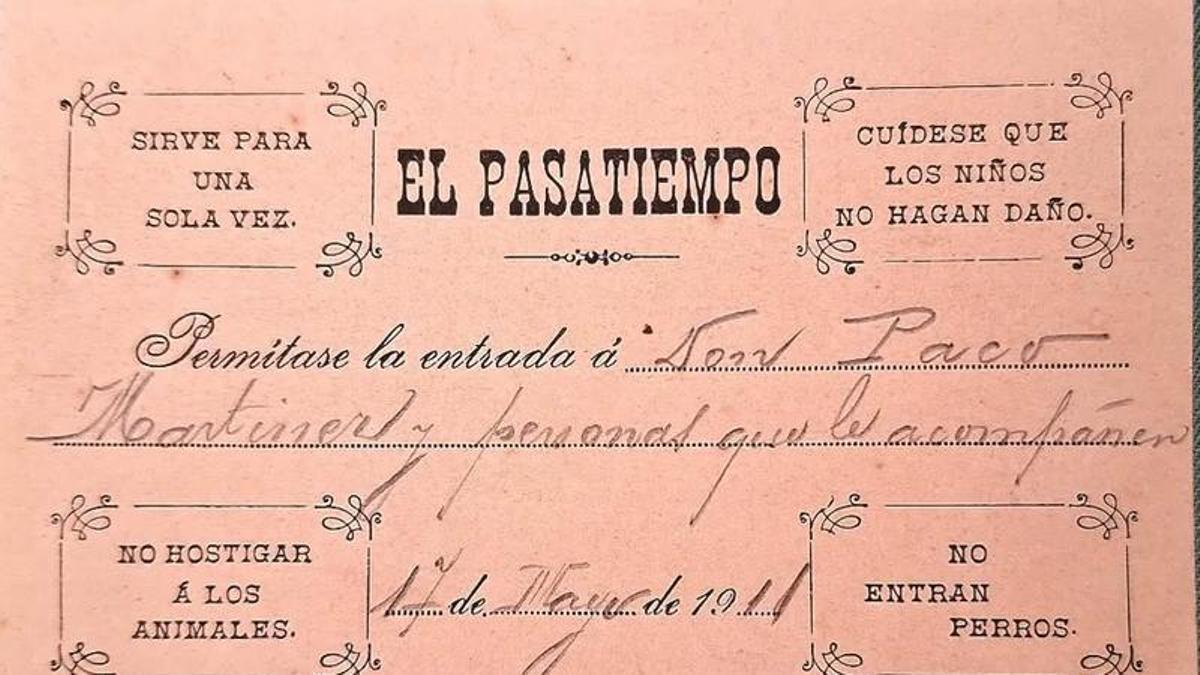 SIRVE PARA
UNA
SOLA VEZ.
EL PASATIEMPO
CUÍDESE QUE
LOS NIÑOS
NO HAGAN DAÑO.
Permítase la entrada á Don Paco
Martinez y personas que le acompáñen
NO HOSTIGAR
Á LOS
ANIMALES.
17 de Mayo de 1911
NO
ENTRAN
PERROS.